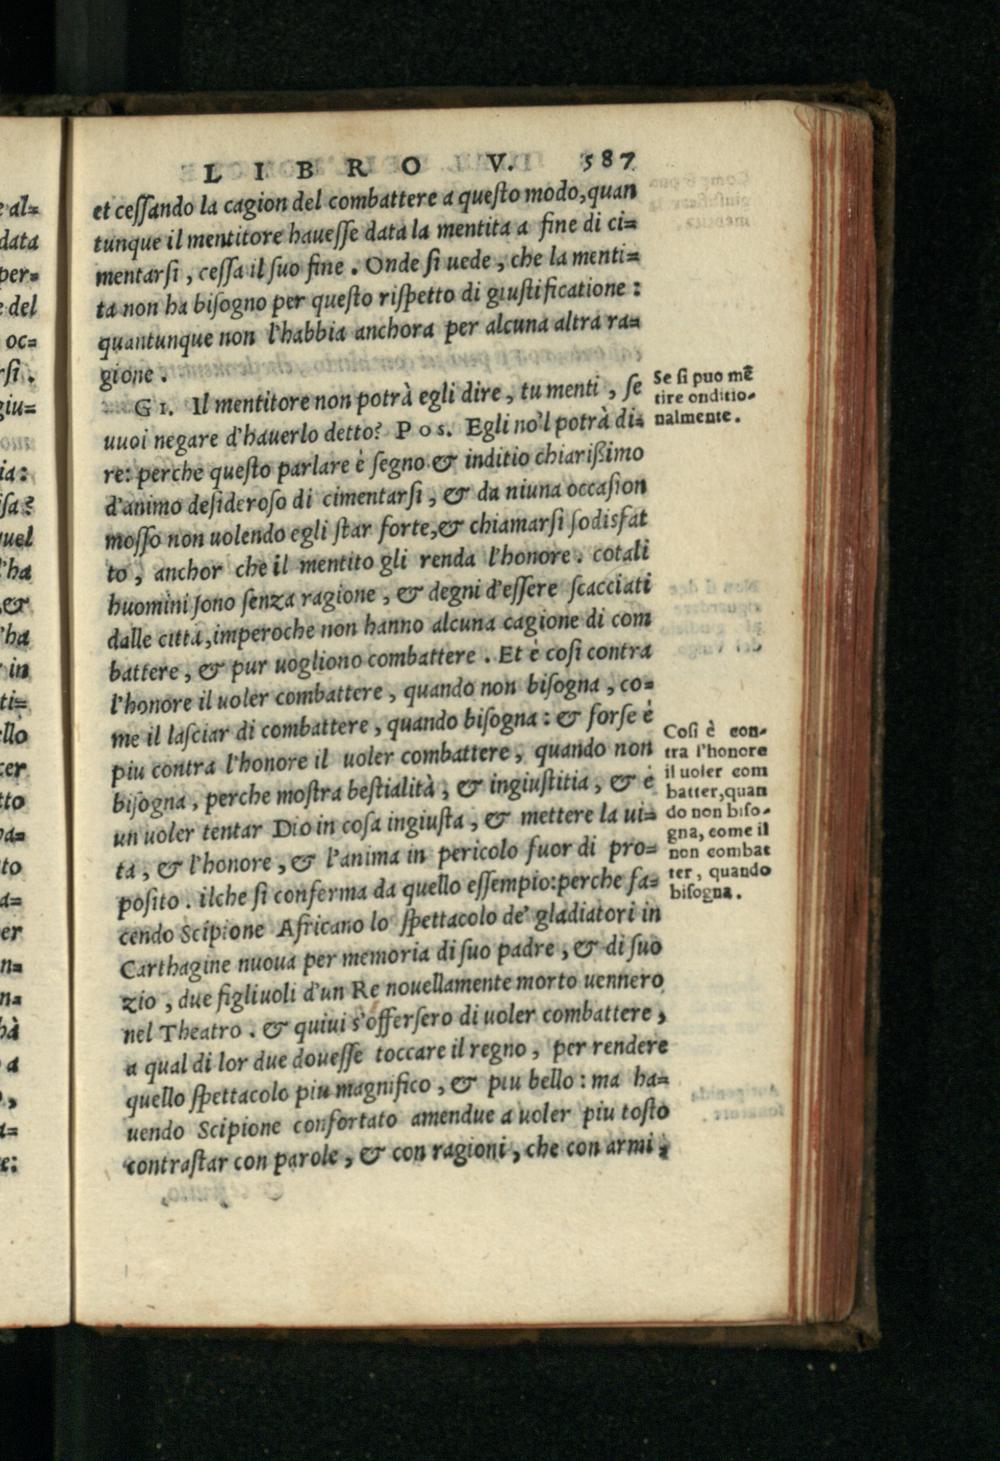 LIBRO V. 587
et ceſſando la cagion del combattere a queſto modo, quan
tunque il mentitore haueſſe data la mentita a fine di ci=
mentarſi, ceſſa il ſuo fine. Onde ſi uede, che la menti=
ta non ha biſogno per queſto riſpetto di giuſtificatione:
quantunque non l'habbia anchora per alcuna altra ra=
gione.
GI. Il mentitore non potrà egli dire, tu menti, ſe
uuoi negare d'hauerlo detto? POS. Egli no'l potrà di=
re: perche queſto parlare è ſegno & inditio chiariſſimo
d'animo deſideroſo di cimentarſi, & da niuna occaſion
moſſo non uolendo egli ſtar forte, & chiamarſi ſodisfat
to, anchor che il mentito gli renda l'honore. cotali
huomini ſono ſenza ragione, & degni d'eſſere ſcacciati
dalle città, imperoche non hanno alcuna cagione di com
battere, & pur uogliono combattere. Et è coſi contra
l'honore il uoler combattere, quando non biſogna, co=
me il laſciar di combattere, quando biſogna: & forſe è
piu contra l'honore il uoler combattere, quando non
biſogna, perche moſtra beſtialità, & ingiuſtitia, & è
un uoler tentar Dio in coſa ingiuſta, & mettere la ui=
ta, & l'honore, & l'anima in pericolo fuor di pro=
poſito. ilche ſi conferma da quello eſſempio: perche fa=
cendo Scipione Africano lo ſpettacolo de' gladiatori in
Carthagine nuoua per memoria di ſuo padre, & di ſuo
zio, due figliuoli d'un Re nouellamente morto uennero
nel Theatro. & quiui s'offerſero di uoler combattere,
a qual di lor due doueſſe toccare il regno, per rendere
quello ſpettacolo piu magnifico, & piu bello: ma ha=
uendo Scipione confortato amendue a uoler piu toſto
contraſtar con parole, & con ragioni, che con armi,
Se ſi puo mē
tire onditio-
nalmente.
Coſi è con-
tra l'honore
il uoler com
batter, quan
do non biſo-
gna, come il
non combat
ter, quando
biſogna.
al=
data
per=
e del
oc=
rſi.
giu=
ia:
iſa?
quel
l'ha
&
'ha
in
ti=
ello
cer
tto
to
a=
er
n=
na
hà
a